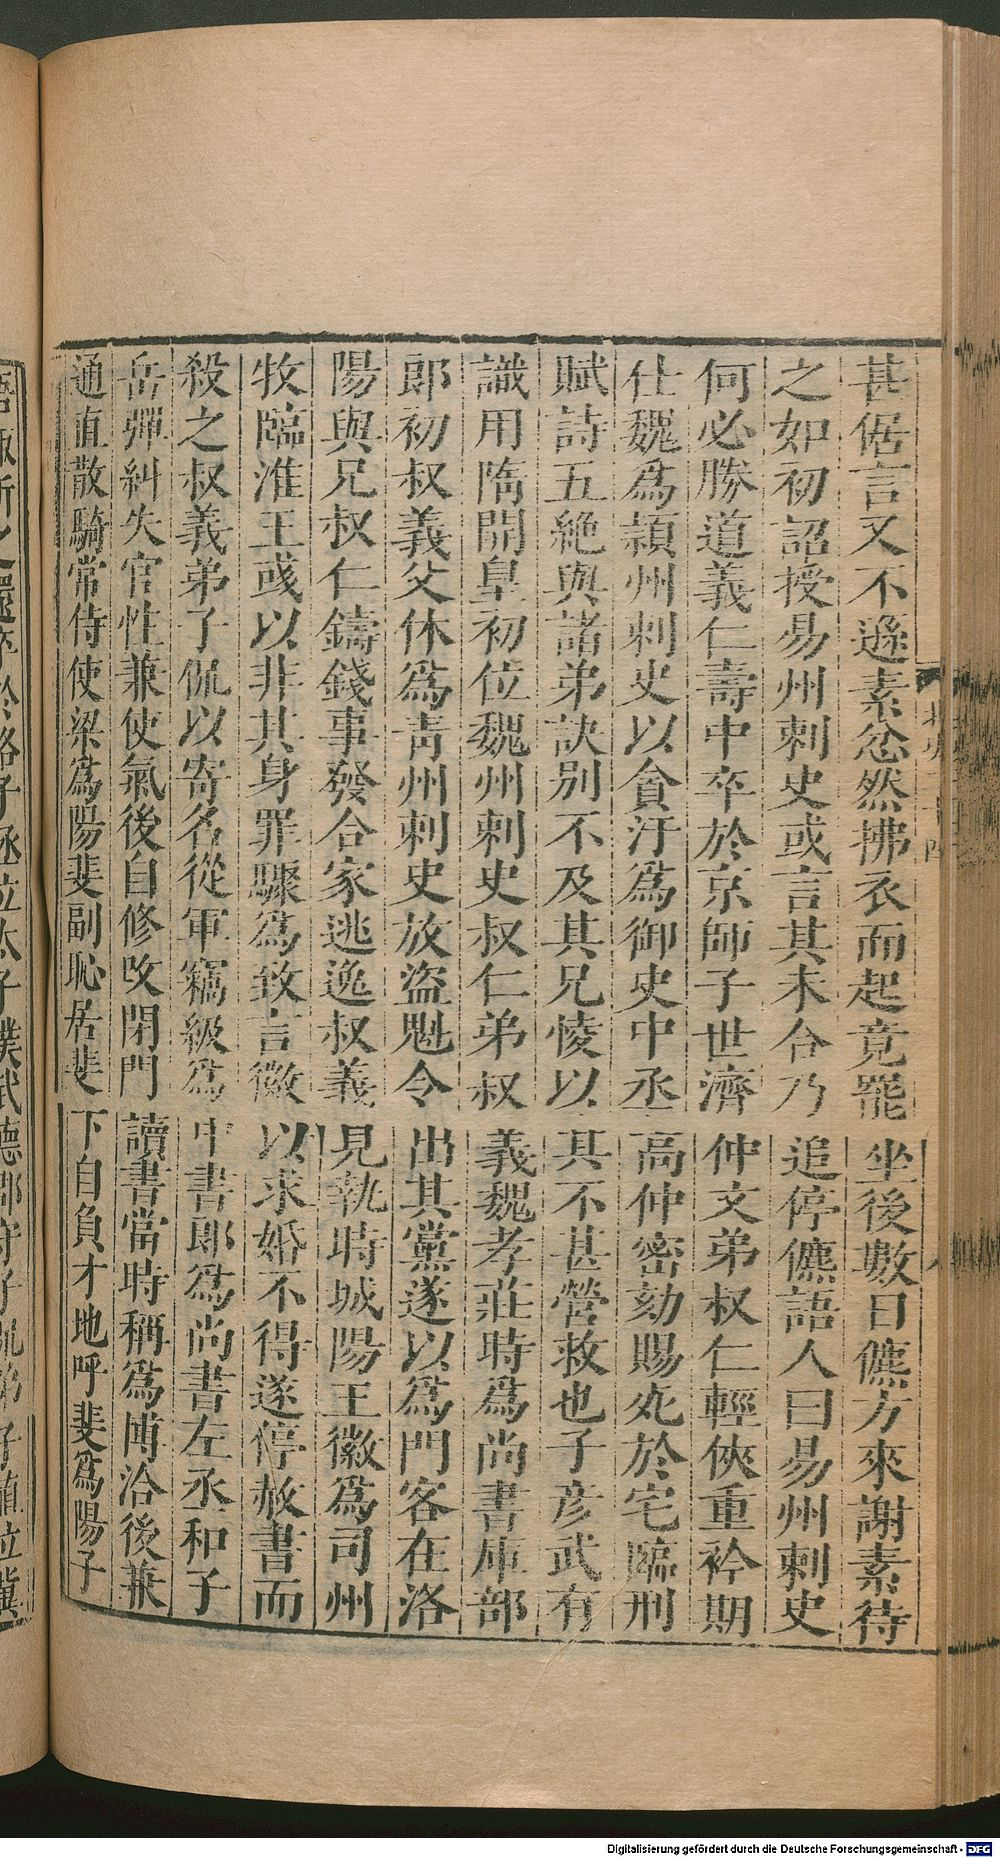 甚倨言又不遜素忿然拂衣而起竟罷坐後數日儦方來謝素待
之如初詔授易州刺史或言其未合乃追停儦語人曰易州刺史
何必勝道義仁壽中卒於京師子世濟仲文弟叔仁輕俠重衿期
仕魏爲潁州刺史以貪汙爲御史中丞高仲密劾賜死於宅臨刑
賦詩五絶與諸弟訣别不及其兄㥄以其不甚營救也子彦武有
識用隋開皇初位魏州刺史叔仁弟叔義魏孝莊時爲尚書庫部
郎初叔義父休爲青州刺史放盜魁令出其黨遂以爲門客在洛
陽與兄叔仁鑄錢事發合家逃逸叔義見執時城陽王徽爲司州
牧臨淮王彧以非其身罪驟爲致言徽以求婚不得遂停赦書而
殺之叔義弟子侃以寄名從軍竊級爲中書郎爲尚書左丞和子
岳彈糾失官性兼使氣後自修改閉門讀書當時稱爲博洽後兼
通直散騎常侍使梁爲陽斐副恥居斐下自負才地呼斐爲陽子
Digitalisierung gefördert durch die Deutsche Forschungsgemeinschaft - DFG